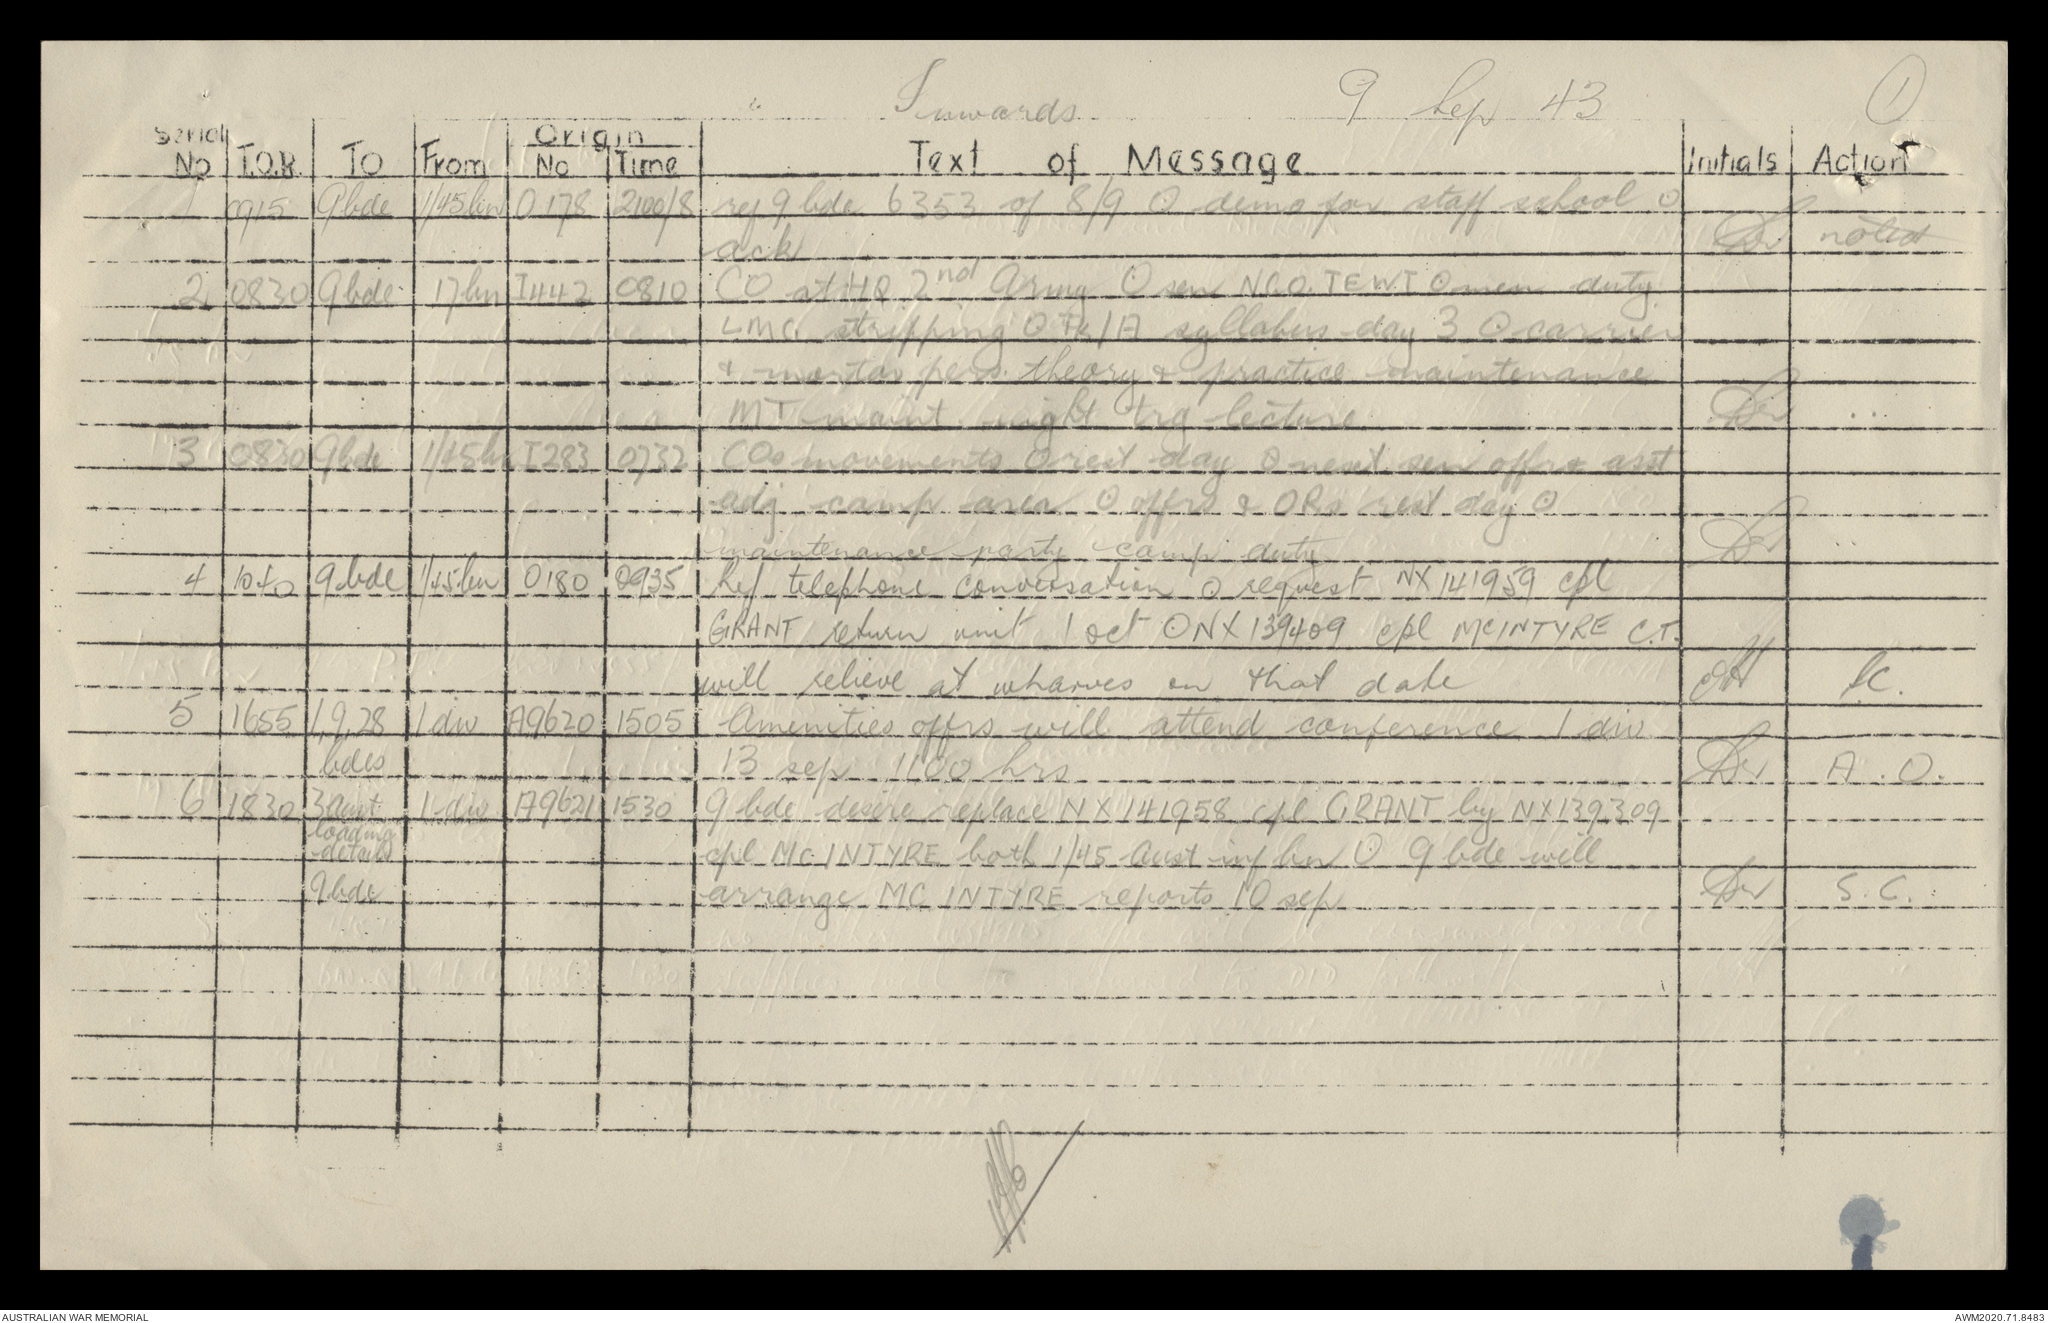 Inwards 9 Sep 43 1
Serial Origin
No T.O.R. TO From No Time Text of Message Initials Action
1 0915 9 bde 1/45 bn O178 2100/8 ref 9 bde 6353 of 8/9 ⊙ demo for staff school ⊙
ack noted
2 0830 9 bde 17 bn I442 0810 CO at HQ 2nd Army ⊙ sen NCO. TEWT ⊙ men duty
LMG. stripping ⊙ TK/A syllabus day 3 ⊙ carrier
& mortar pers. theory & practice maintenance
MT maint night trg lecture ...
3 0830 9 bde 1/45 bn I283 0732 COs movements ⊙ rest day ⊙ next sen offr & asst
adj camp area ⊙ offrs & ORs rest day ⊙
maintenance party camp duty ...
4 1040 9 bde 1/45 bn O180 0935 Ref telephone conversation ⊙ request NX 141959 cpl
GRANT return unit 1 oct ⊙ NX 139409 cpl MCINTYRE C.T.
will relieve at wharves on that date SC.
5 1655 1,9,28 1 div A9620 1505 Amenities offrs will attend conference 1 div
bdes 13 sep 1100 hrs A.O.
6 1830 3 aust 1 div A9621 1530 9 bde desire replace NX 141958 cpl GRANT by NX139309
loading
details cpl MCINTYRE both 1/45 Aust inf bn ⊙ 9 bde will
9 bde arrange MC INTYRE reports 10 sep S.C.
AUSTRALIAN WAR MEMORIAL AWM2020.71.8483